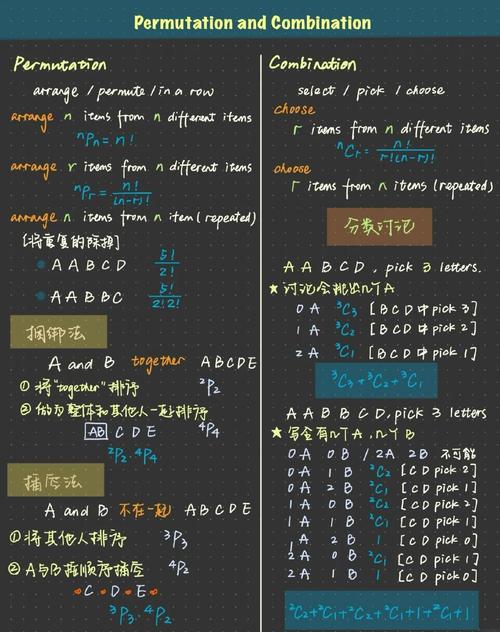 Permutation and Combination
Permutation
arrange / permute / in a row
arrange n items from n different items
ⁿPₙ = n!
arrange r items from n different items
ⁿPᵣ = n!/(n-r)!
arrange n items from n item (repeated)
[将重复的除掉]
A A B C D 5!/2!
A A B B C 5!/2!2!
捆绑法
A and B together A B C D E
① 将"together"排序 ²P₂
② 做为整体和其他人一起排序 ⁴P₄
AB C D E
²P₂ · ⁴P₄
插空法
A and B 不在一起 A B C D E
① 将其他人排序 ³P₃
② A与B按顺序插空 ⁴P₂
C D E
³P₃ · ⁴P₂
Combination
select / pick / choose
choose
r items from n different items
ⁿCᵣ = n!/r!(n-r)!
choose
r items from n items (repeated)
分类讨论
A A B C D , pick 3 letters.
★ 讨论会挑出几个A
0 A ³C₃ [ B C D 中 pick 3 ]
1 A ³C₂ [ B C D 中 pick 2 ]
2 A ³C₁ [ B C D 中 pick 1 ]
³C₃ + ³C₂ + ³C₁
A A B B C D , pick 3 letters
★ 写会有几个A , 几个B
0 A 0 B / 2A 2B 不可能
0 A 1 B ²C₂ [ C D pick 2 ]
0 A 2 B ²C₁ [ C D pick 1 ]
1 A 0 B ²C₂ [ C D pick 2 ]
1 A 1 B ²C₁ [ C D pick 1 ]
1 A 2 B 1 [ C D pick 0 ]
2 A 0 B ²C₁ [ C D pick 1 ]
2 A 1 B 1 [ C D pick 0 ]
²C₂ + ²C₁ + ²C₂ + ²C₁ + 1 + ²C₁ + 1